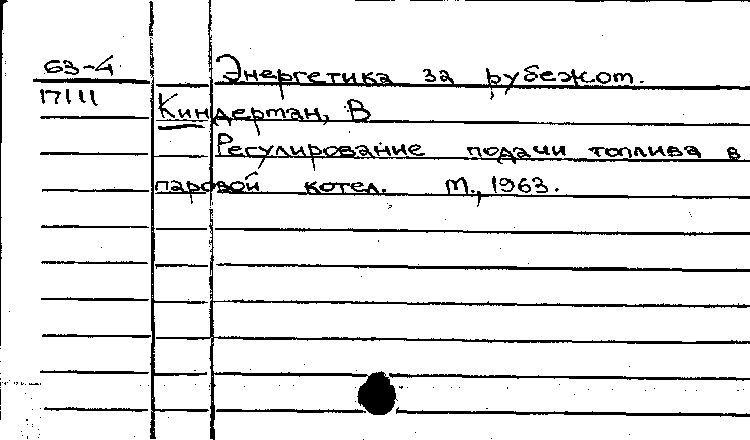 63-4 Энергетика за рубежом.
17111 Киндерман, В
Регулирование подачи топлива в
паровой котел. М., 1963.